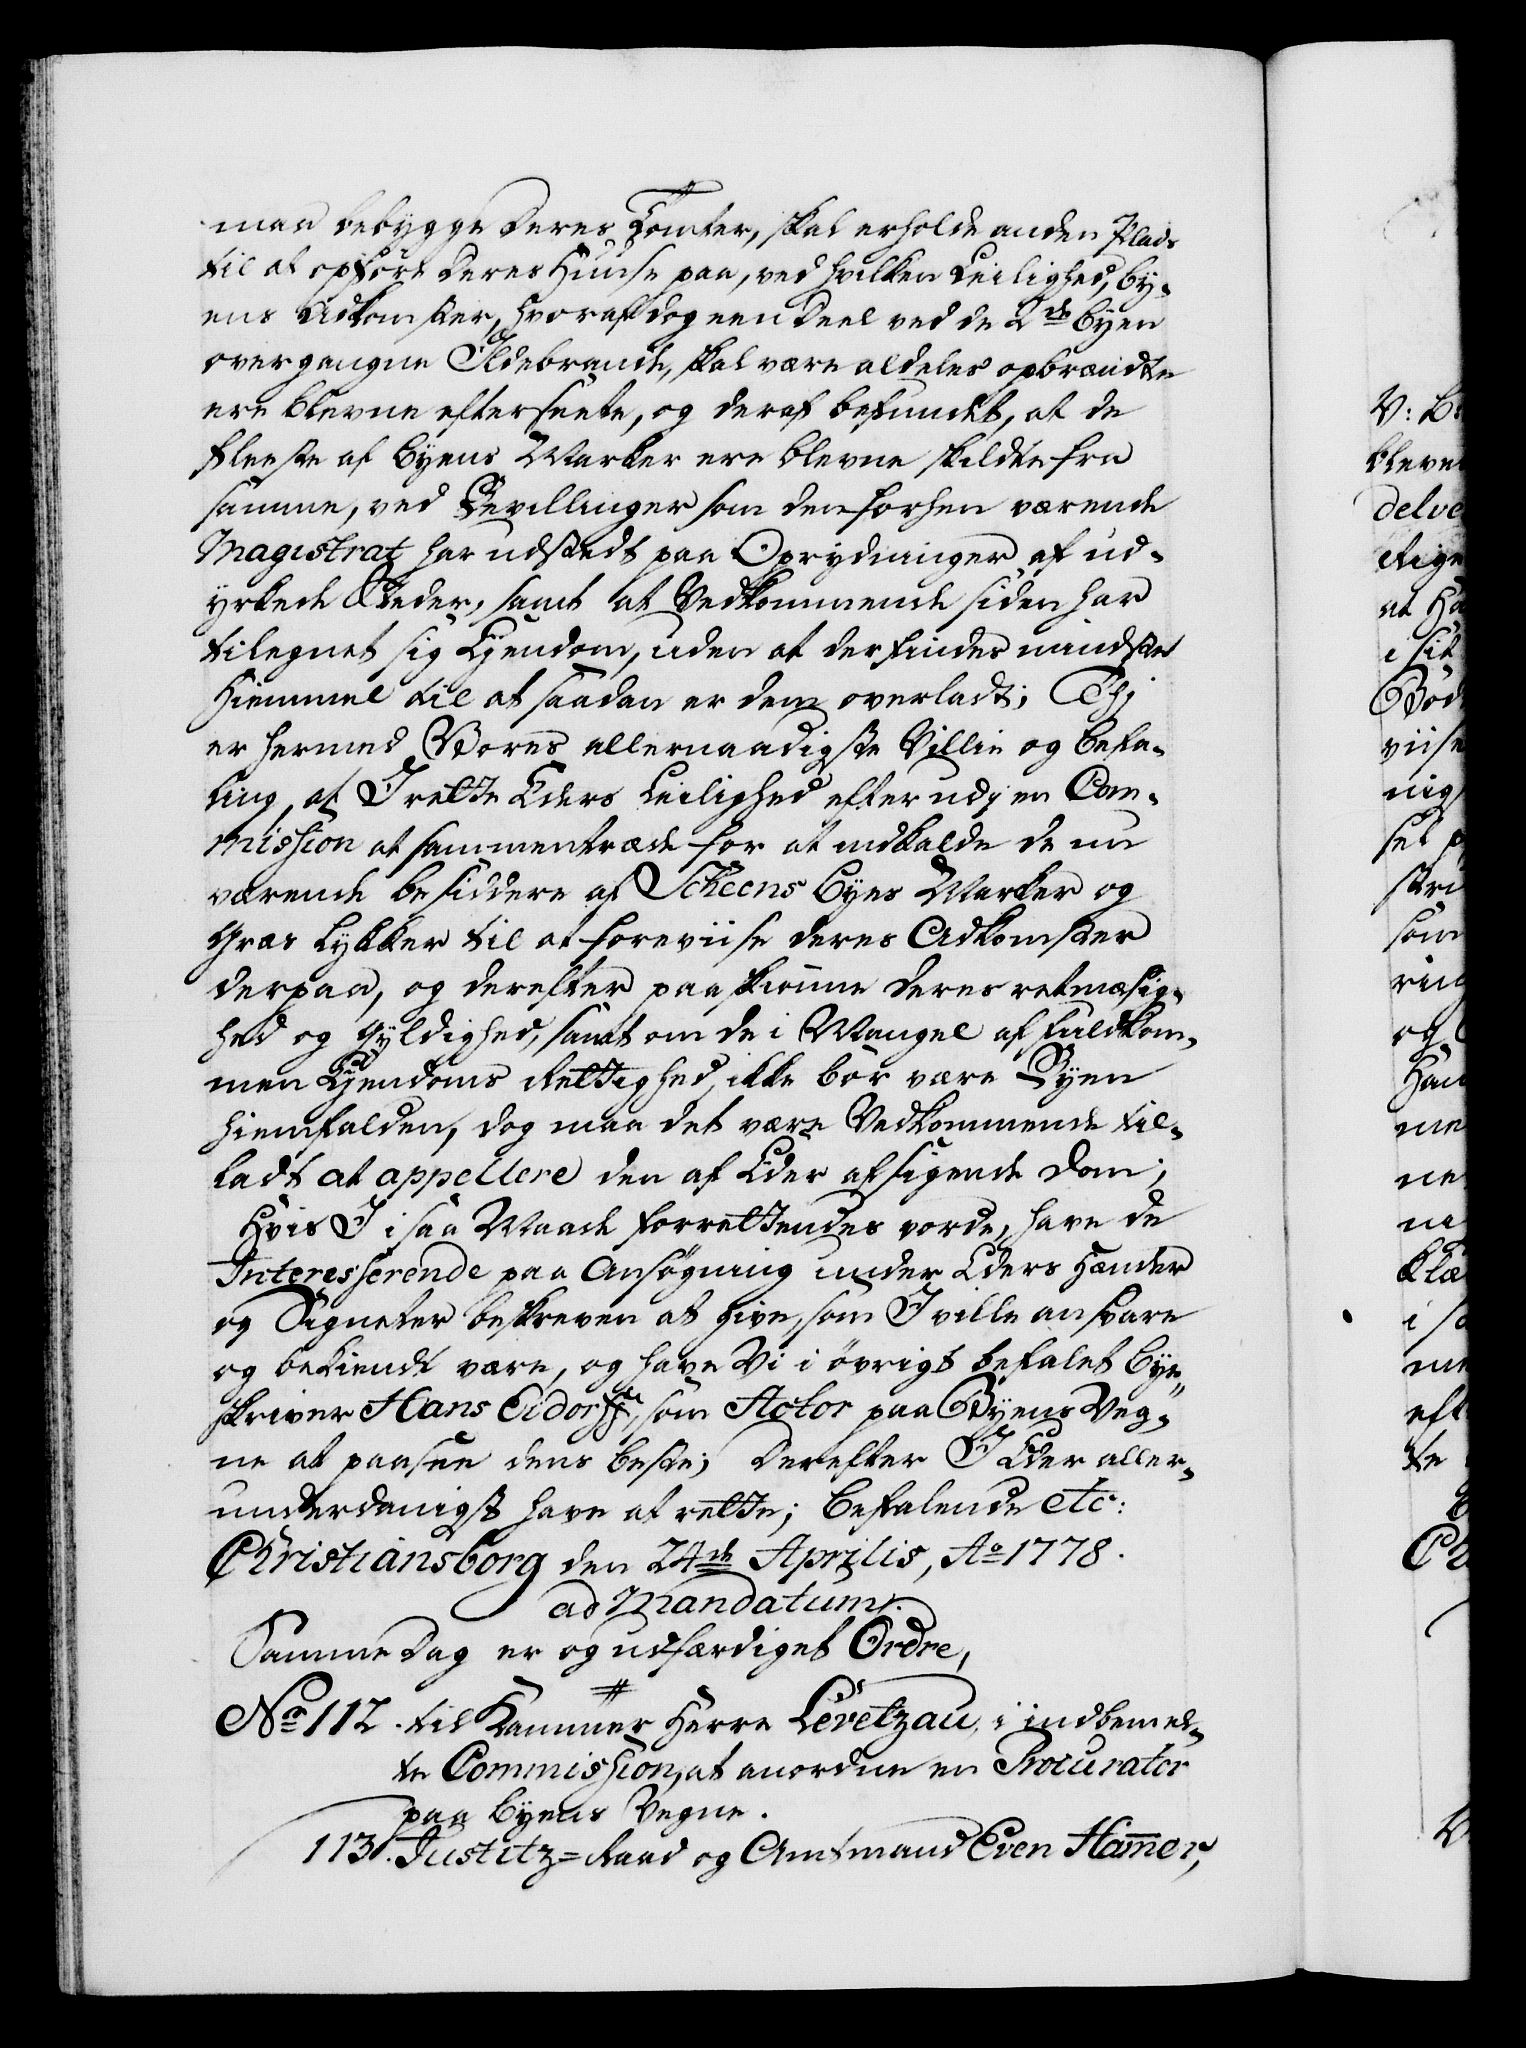 maa bebygge deres Tomter, skal erholde anden Plads
til at opføre deres Huuse paa, ved hvilken Leilighed, By-
ens Adkomster, hvoraf dog een Deel ved de 2de Byen
overgangne Ildebrande, skal være aldeles opbrændte
ere blevne efterseete, og deraf befundet, at de
fleeste af Byens Marker ere blevne skildte fra
samme, ved Bevillinger som den forhen værende
Magistrat har udstedt paa Oprydninger af ud-
yrkede Steder, samt at Vedkommende siden har
tilegnet sig Eyendom, uden at der findes mindste
Hiemmel til at saadan er dem overladt; Thj
er hermed Vores allernaadigste Villie og Befa-
ling, at I rette Eders Leilighed efter udj en Com-
mission at sammentræde for at indkalde de nu
værende besiddere af Scheens Byes Marker og
Græs Løkker til at foreviise deres Adkomster
derpaa, og derefter paaskiønne deres retmæsig-
hed og Gyldighed, samt om de i Mangel af fuldkom-
men Eyendoms Rettighed, ikke bør være Byen
hiemfalden, dog maa det være Vedkommende til-
ladt at appellere den af Eder afsigende Dom;
Hvis I i saa Maade forrettendes vorde, have de
Interesserende paa Ansøgning under Eders Hænder
og Signeter beskreven at give, som I ville ansvare
og bekiendt være, og have Vi i øvrigt befalet Bye-
skriver Hans Eidorff, som Actor paa Byens Veg-
ne at paasee dens beste; Derefter I Eder aller-
underdanigst have at rette; Befalende etc:
Christiansborg den 24de Aprilis, Ao 1778.
ad Mandatum.
Samme Dag er og udfærdiget Ordre,
No 112. til Kammer Herre Levetzau, i indbemel-
te Commission, at anordne en Procurator
paa Byens Vegne.
113. Justitz-Raad og Amtmand Even Hamer,